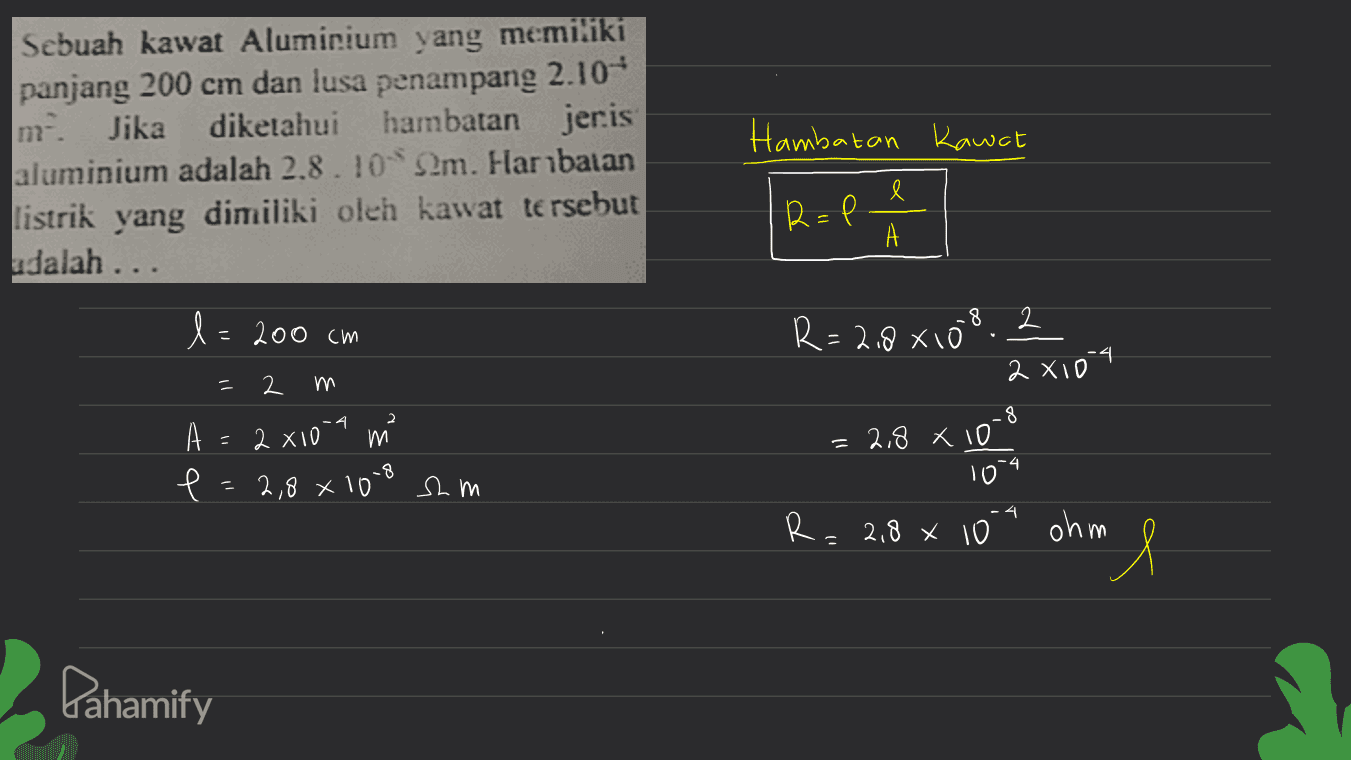 Sebuah kawat Aluminium yang memiliki
panjang 200 cm dan lusa penampang 2.10⁻⁴
m². Jika diketahui hambatan jenis
aluminium adalah 2.8 . 10⁻⁸ Ωm. Hambatan
listrik yang dimiliki oleh kawat tersebut
adalah . . .
Hambatan Kawat
R = ρ l/A
l = 200 cm
= 2 m
A = 2 x10⁻⁴ m²
ρ = 2,8 x 10⁻⁸ Ωm
R = 2,8 x10⁻⁸ . 2/2 x10⁻⁴
= 2,8 x 10⁻⁸/10⁻⁴
R = 2,8 x 10⁻⁴ ohm
Pahamify